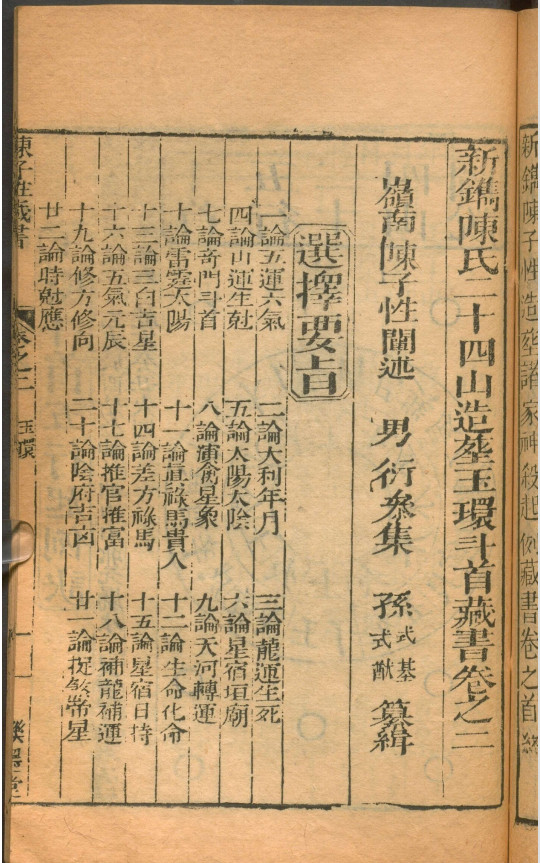 新鐫陳子性造塟諸家神殺起例藏書卷之首終
新鐫陳氏二十四山造塟玉環斗首藏書卷之二
嶺南陳子性闡述 男衍參集 孫式基式猷纂緝
選擇要㫖
一論五運六氣 二論大利年月 三論龍運生死
四論山運生尅 五論太陽太陰 六論星宿垣廟
七論竒門斗首 八論演禽星象 九論天河轉運
十論雷霆太陽 十一論眞祿馬貴人 十二論生命化命
十三論三白吉星 十四論差方祿馬 十五論星宿日時
十六論五氣元辰 十七論推官推富 十八論補龍補運
十九論修方修向 二十論陰府吉凶 廿一論捉煞帝星
廿二論時尅應
陳子性藏書 卷之二 玉環 一 堂